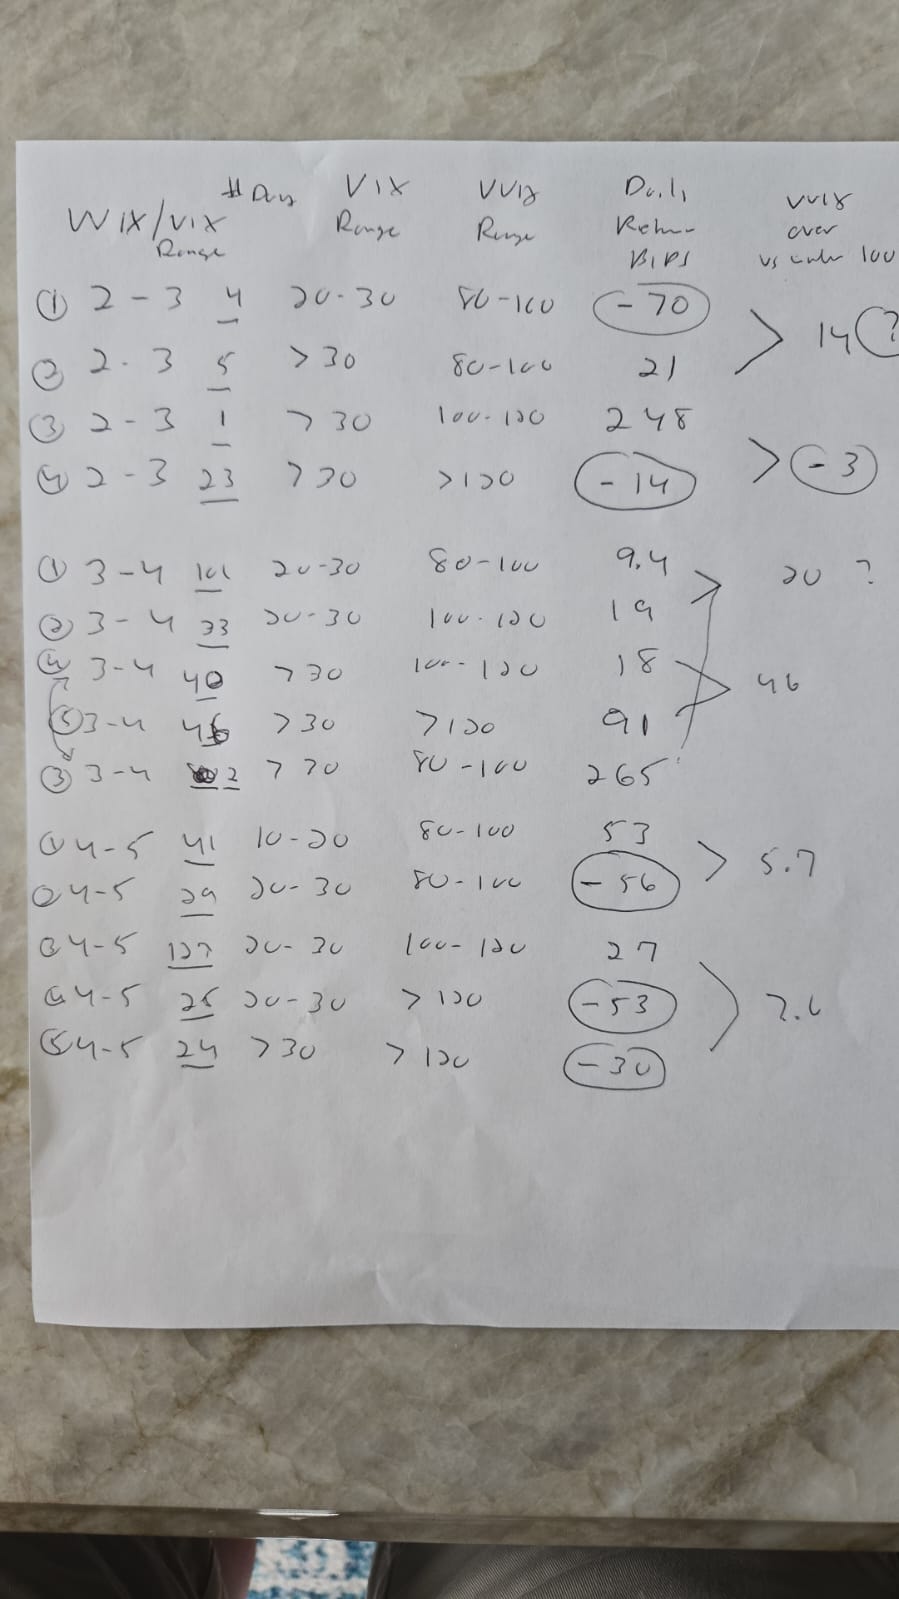 # Days VIX VVIX Daily VVIX
VVIX/VIX Range Range Return over
Range BIPS vs under 100
① 2-3 4 20-30 80-100 -70 > 14 ?
② 2-3 5 >30 80-100 21
③ 2-3 1 >30 100-120 248
④ 2-3 23 >30 >120 -14 > -3
① 3-4 101 20-30 80-100 9.4 > 20 ?
② 3-4 33 20-30 100-120 19
④ 3-4 40 >30 100-120 18 > 46
⑤ 3-4 46 >30 >120 91
③ 3-4 2 >30 80-100 265
① 4-5 41 10-20 80-100 53 > 5.7
② 4-5 29 20-30 80-100 -56
③ 4-5 127 20-30 100-120 27
④ 4-5 25 20-30 >120 -53
⑤ 4-5 24 >30 >120 -30